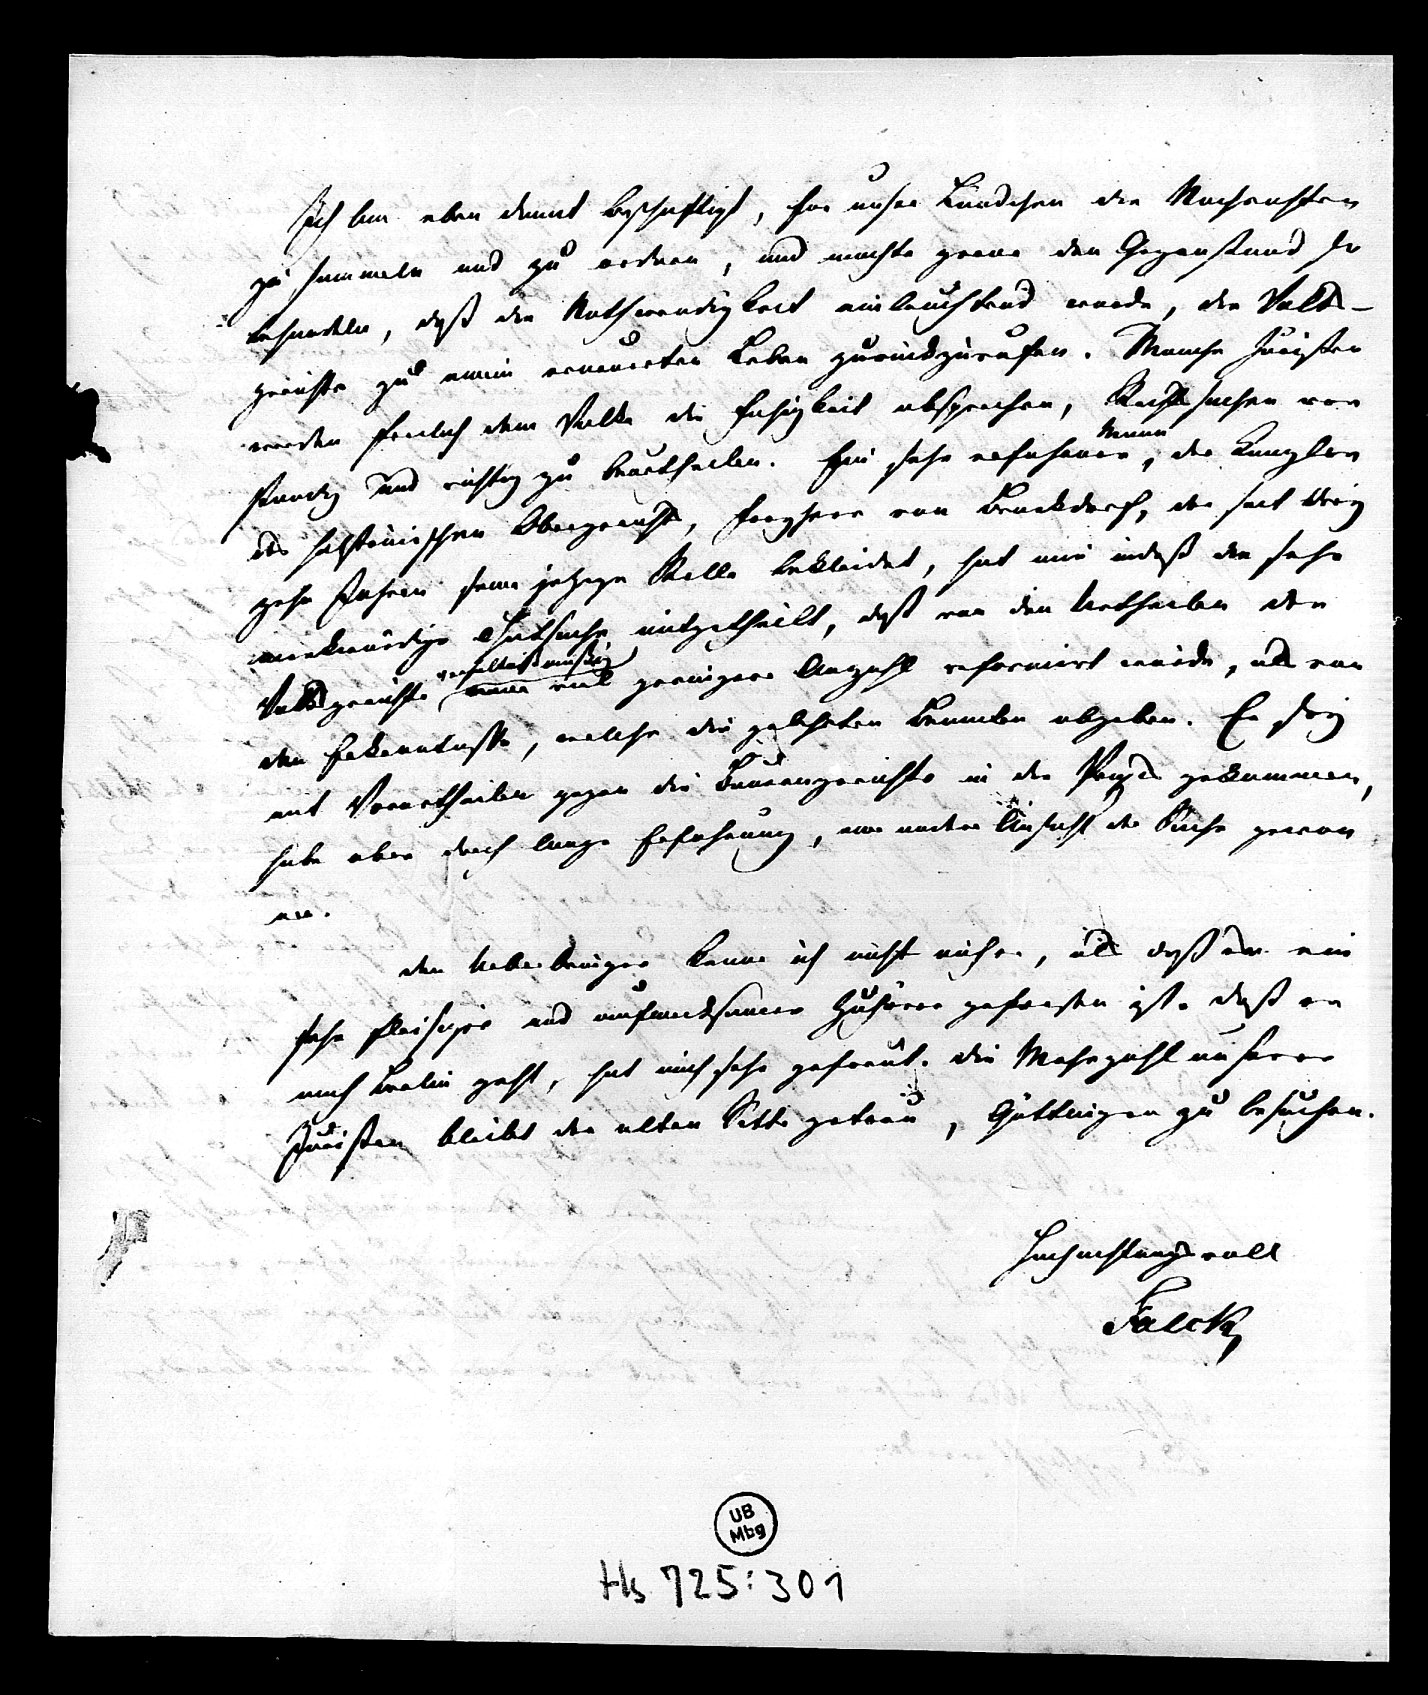 Ich bin eben damit beschäftigt, für unser Ländchen die Nachrichten
zu sammeln und zu ordnen, und möchte gerne den Gegenstand so
behandeln, daß die Nothwendigkeit einleuchtend werde, die Volks-
gerichte zu einem erneuerten Leben zurückzurufen. Manche Juristen
werden freilich dem Volke die Fähigkeit absprechen, Rechtssachen ver
ständig und richtig zu beurtheilen. Ein sehr erfahrener Mann, der Kanzler
des holsteinischen Obergerichts, Freyherr von Brockdorf, der seit dreiz
zehn Jahren seine jetzige Stelle bekleidet, hat mir indeß die sehr
merkwürdige Thatsache mitgetheilt, daß von den Urtheilen der
Volksgerichte verhältnißmäßig eine viel geringere Anzahl reformirt würde, als von
den Erkenntnissen, welche die gelehrten Beamten abgeben. Er sey
mit Vorurtheilen gegen die Bauerngerichte in die Praxis gekommen,
habe aber durch lange Erfahrung, eine andere Ansicht der Sache gewon
nen.
Den Ueberbringer kenne ich nicht näher, als daß er ein
sehr fleißiger und aufmerksamer Zuhörer gewesen ist. Daß er
nach Berlin geht, hat mich sehr gefreut. Die Mehrzahl unserer
Juristen bleibt der alten Sitte getreu, Göttingen zu besuchen.
Hochachtungsvoll
Falck
UB
Mbg
Hs 725:301